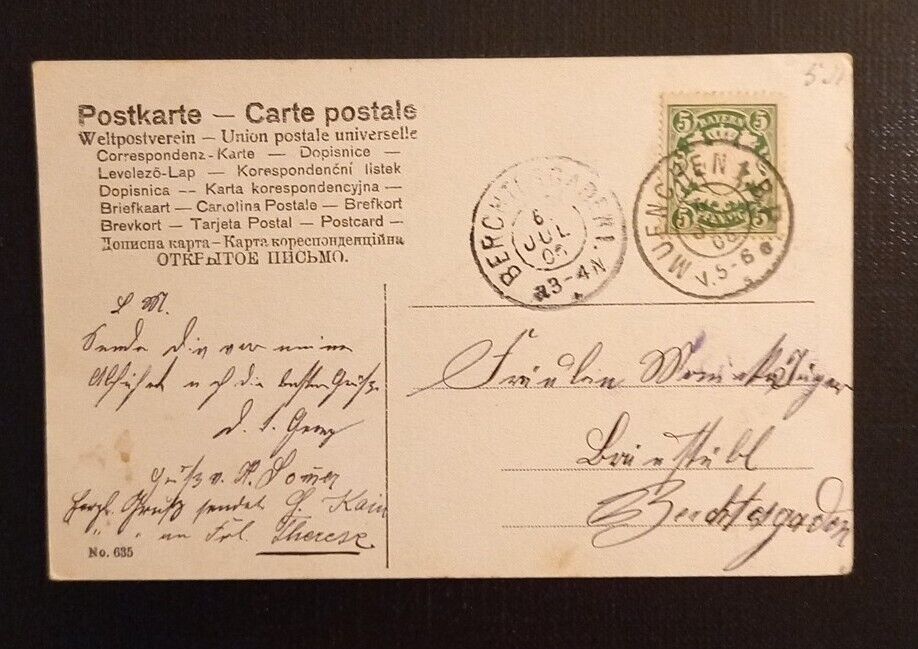 Postkarte — Carte postale
Weltpostverein — Union postale universelle
Correspondenz-Karte — Dopisnice —
Levelező-Lap — Korespondenční lístek
Dopisnica — Karta korespondencyjna —
Briefkaart — Cartolina Postale — Brefkort
Brevkort — Tarjeta Postal — Postcard —
Дописна карта — Карта кореспонденційна
ОТКРЫТОЕ ПИСЬМО.
BERCHTESGADEN 1.
6
JUL
06
3-4 N
5 BAYERN 5
5 5
MUENCHEN 1. B.P.
06
V. 5-6
L. M.
Sende dir vor meiner
Abfahrt noch die besten Grüße
D. l. Georg
Gruß v.
Herzl. Gruß sendet Kain
" " an Frl. Therese
Fräulein
Bräustübl
Berchtesgaden
No. 635